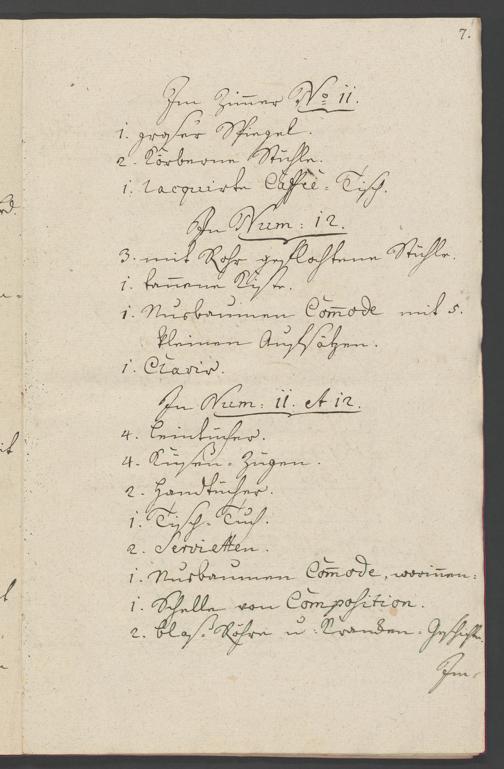 7.
Im Zimer No 11.
1. groser Spiegel.
2. Körberne Stühle.
1. lacquirte Caffée-Tisch.
In Num: 12.
3. mit Rohr geflochtene Stühle.
1. tannene Kiste.
1. Nusbaumen Comode mit 5.
kleinen Aufsätzen.
1. Clavir.
In Num: 11. et 12.
4. Leintücher.
4. Küsen-Zügen.
2. Handtücher.
1. Tisch-Tuch.
2. Servietten.
1. Nusbaumen Comode, worinnen:
1. Schelle von Composition.
2. blas-Röhre u:
Im